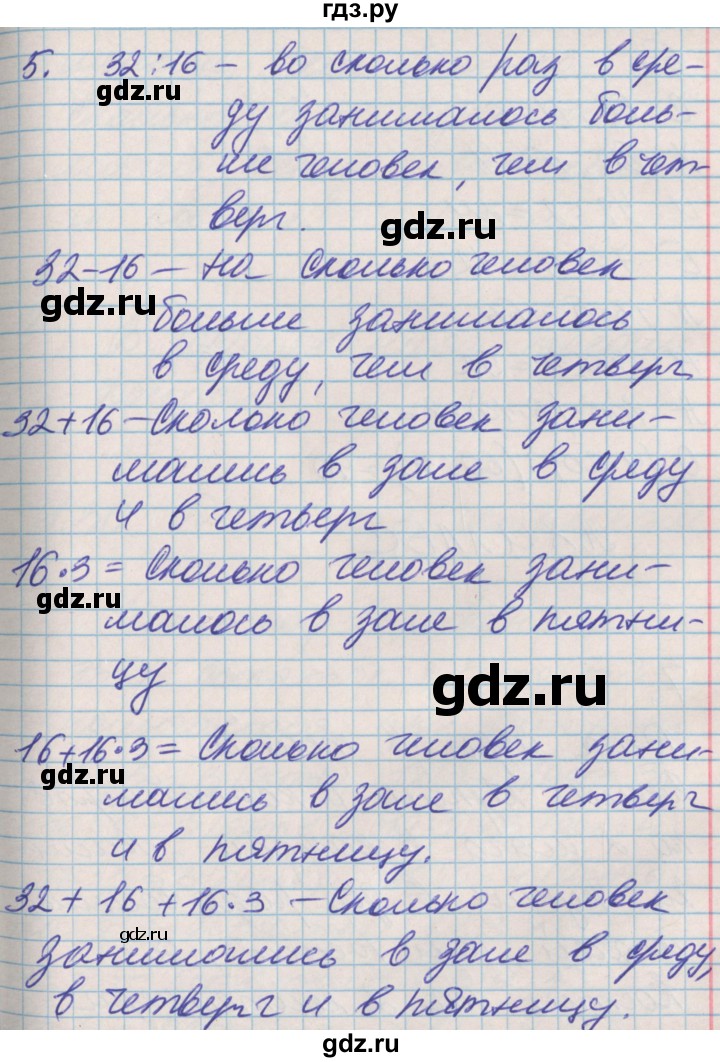 гдз.ру
5. 32:16 – во сколько раз в сре-
gdz.ru
ду занималось боль-
ше человек, чем в чет-
верг.
gdz.ru
32-16 – на сколько человек
gdz.ru
больше занималось
в среду, чем в четверг
32+16 – Сколоко человек зани-
gdz.ru
мались в зале в среду
и в четьверг
16·3 = Сколько человек зани-
gdz.ru
малось в зале в пятни-
цу
gdz.ru
16+16·3 = Сколько человек зани-
gdz.ru
мались в зале в четверг
и в пятницу.
32 + 16 + 16·3 – Сколько человек
gdz.ru
занимались в зале в среду,
в четверг и в пятницу.
gdz.ru